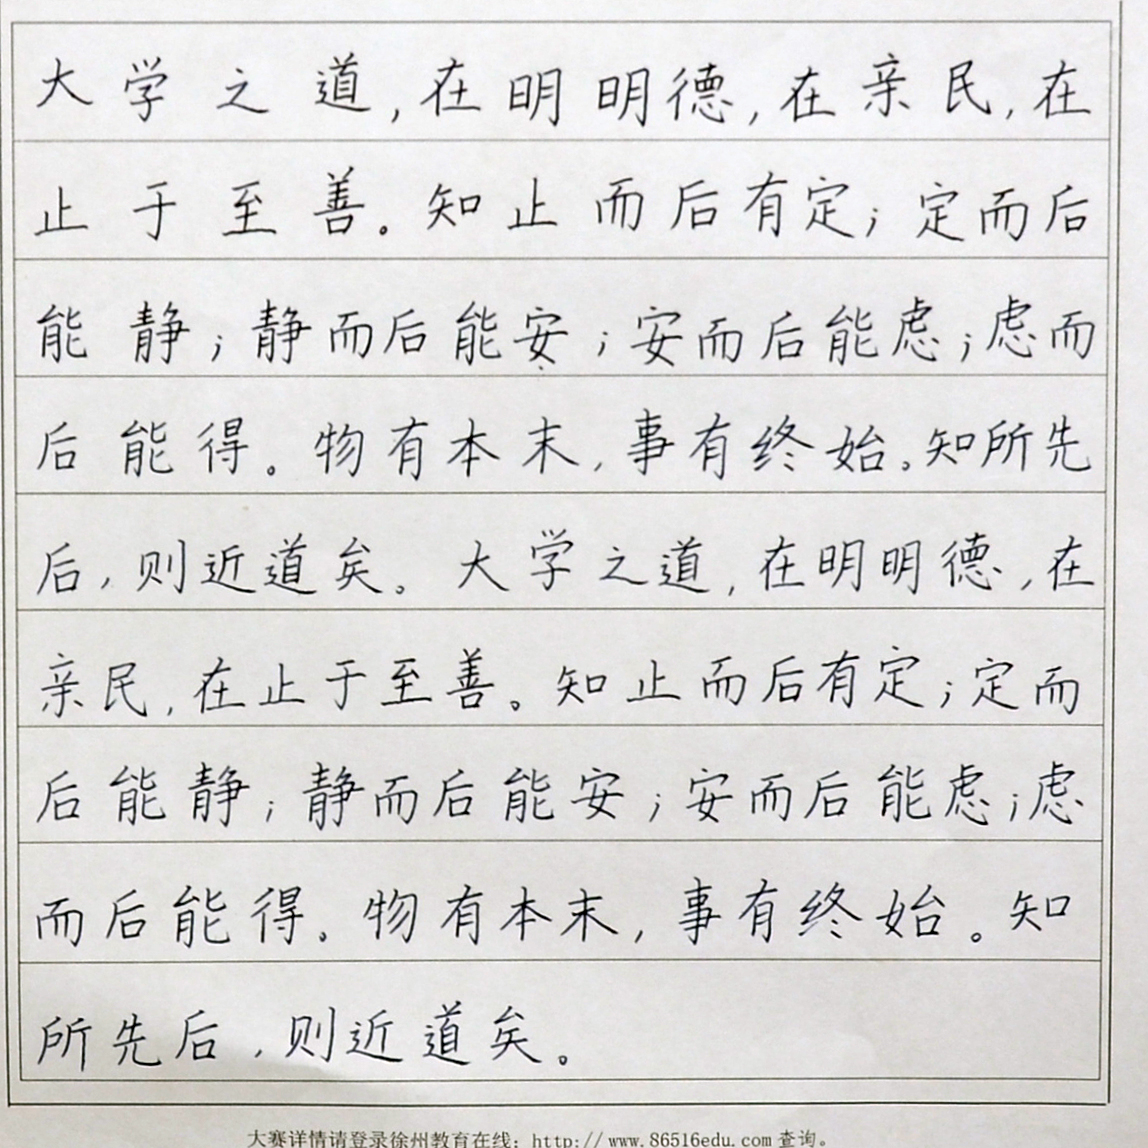 大学之道,在明明德,在亲民,在
止于至善。知止而后有定;定而后
能静;静而后能安;安而后能虑;虑而
后能得。物有本末,事有终始。知所先
后,则近道矣。大学之道,在明明德,在
亲民,在止于至善。知止而后有定;定而
后能静;静而后能安;安而后能虑;虑
而后能得。物有本末,事有终始。知
所先后,则近道矣。
大赛详情请登录徐州教育在线:http://www.86516edu.com查询。